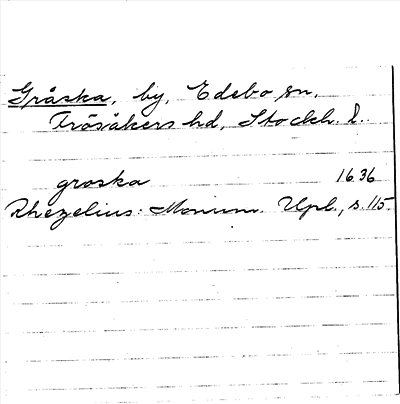 Gråska, by, Edebo sn,
Frösåkers hd, Stockh. l.
groska 1636
Rhezelius: Monum. Upl., s. 115.